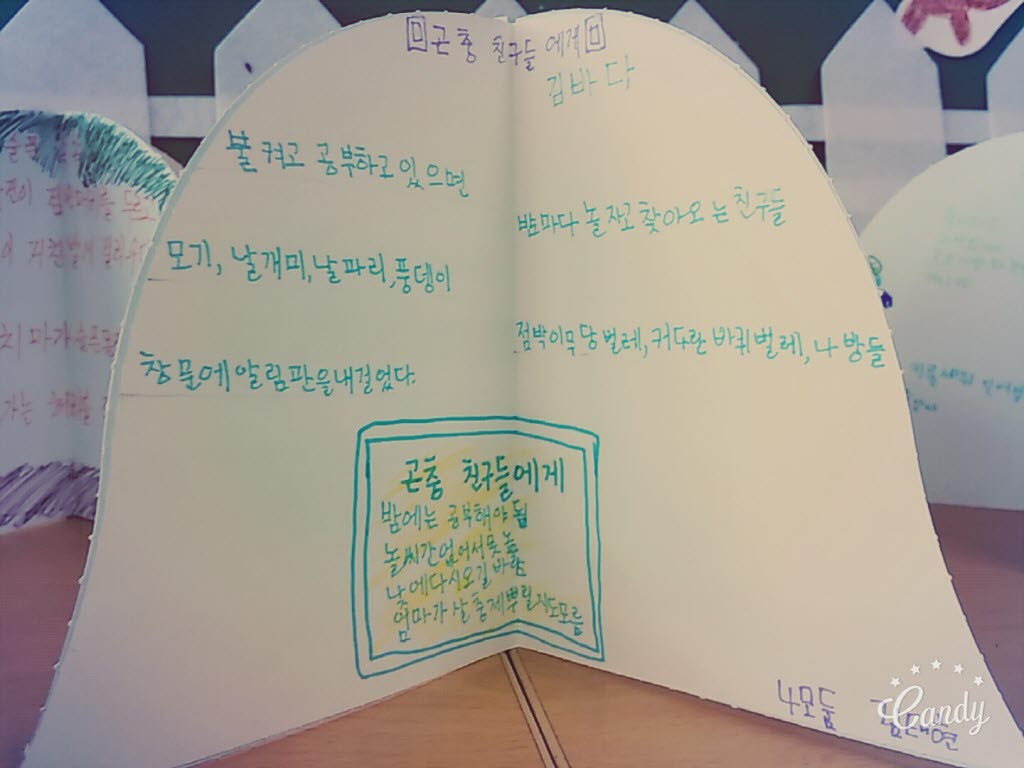 곤충 친구들에게
김바다
불 켜고 공부하고 있으면
밤마다 놀자고 찾아오는 친구들
모기, 날개미, 날파리, 풍뎅이
점박이무당벌레, 커다란 바퀴벌레, 나방들
창문에 알림판을 내걸었다.
곤충 친구들에게
밤에는 공부해야 됨
놀 씨간 없어서 못 놈
낮에 다시 오길 바람
엄마가 살충제 뿌릴지도 모름
4모둠
Candy